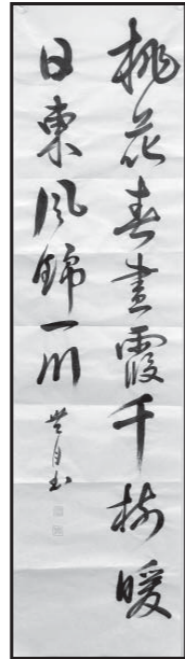 桃花春晝霞千樹暖
日東風錦一川